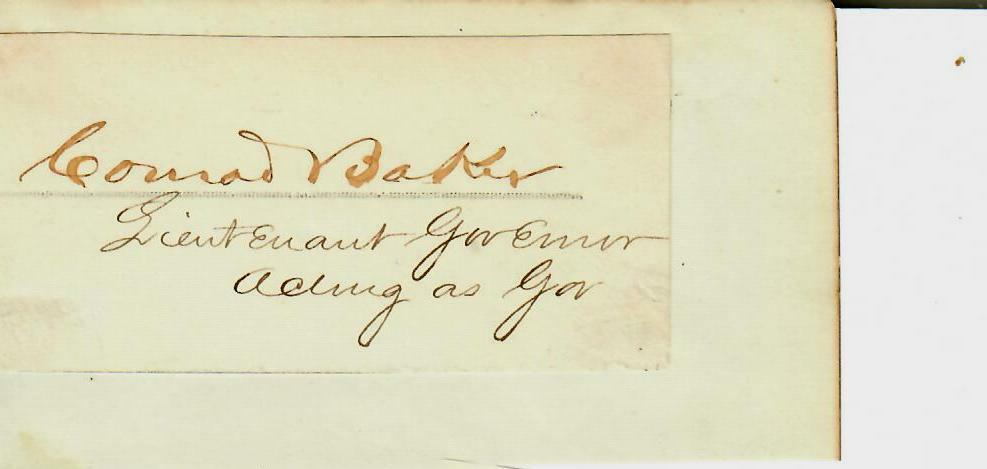 Conrad Baker
Lieutenant Governor
Acting as Gov